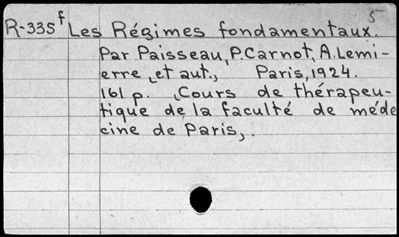 5
R-335f Les Régimes fondamentaux.
Par Paisseau, P.Carnot, A.Lemi-
erre, et aut., Paris, 1924.
161 p. (Cours de thérapeu-
tique de la faculté de méde
cine de Paris).